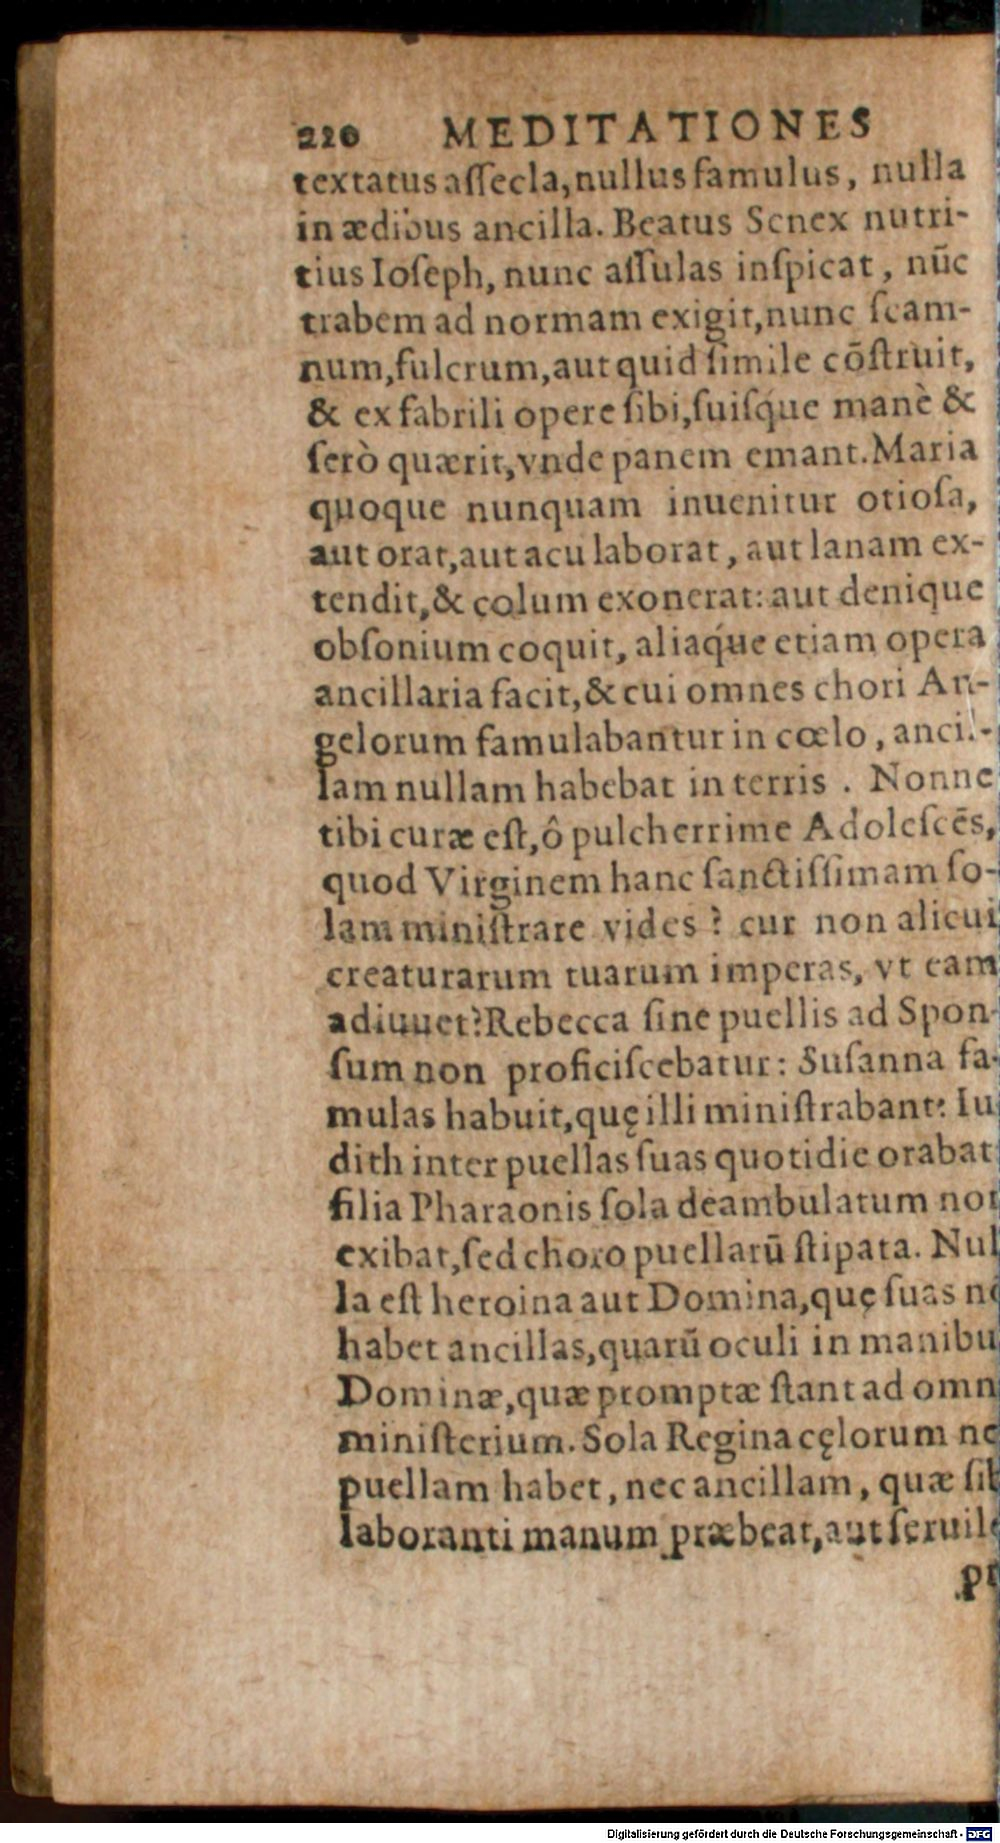 220 MEDITATIONES
textatus aſſecla, nullus famulus, nulla
in ædibus ancilla. Beatus Senex nutri-
tius Ioſeph, nunc aſſulas inſpicat, nūc
trabem ad normam exigit, nunc ſcam-
num, fulcrum, aut quid ſimile cōſtruit,
& ex fabrili opere ſibi, ſuiſq́ue manè &
ſerò quærit, vnde panem emant. Maria
quoque nunquam inuenitur otioſa,
aut orat, aut acu laborat, aut lanam ex-
tendit, & colum exonerat: aut denique
obſonium coquit, aliaq́ue etiam opera
ancillaria facit, & cui omnes chori An-
gelorum famulabantur in cœlo, ancil-
lam nullam habebat in terris. Nonne
tibi curæ eſt, ô pulcherrime Adoleſcēs,
quod Virginem hanc ſanctiſſimam ſo-
lam miniſtrare vides? cur non alicui
creaturarum tuarum imperas, vt eam
adiuuet? Rebecca ſine puellis ad Spon-
ſum non proficiſcebatur: Suſanna fa-
mulas habuit, quę illi miniſtrabant: Iu
dith inter puellas ſuas quotidie orabat
filia Pharaonis ſola deambulatum non
exibat, ſed choro puellarū ſtipata. Nul
la eſt heroina aut Domina, quę ſuas
habet ancillas, quarū oculi in manibu
Dominæ, quæ promptæ ſtant ad omn
miniſterium. Sola Regina cęlorum
puellam habet, nec ancillam, quæ ſib
laboranti manum præbeat, aut ſeruile
Digitalisierung gefördert durch die Deutsche Forschungsgemeinschaft - DFG